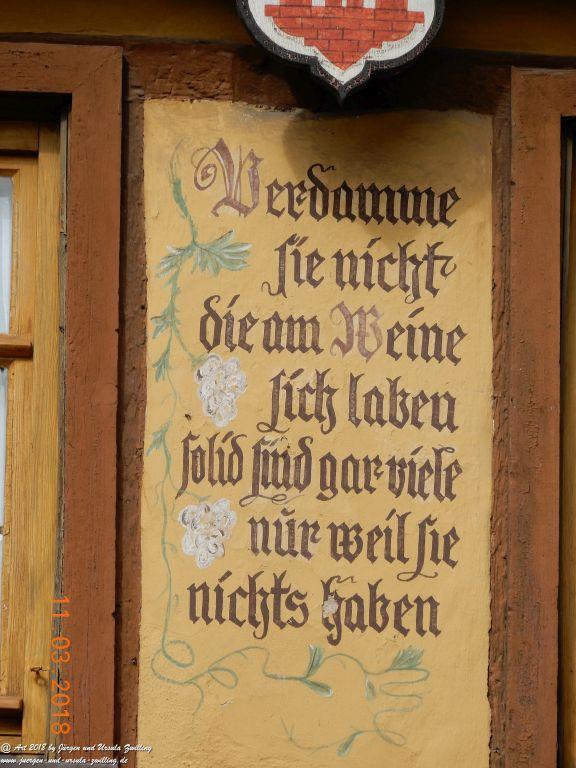 Verdamme
sie nicht
die am Weine
sich laben
solid sind gar viele
nŭr weil sie
nichts haben
11.03.2018
© Art 2018 by Jürgen und Ursula Zwilling
www.juergen-und-ursula-zwilling.de